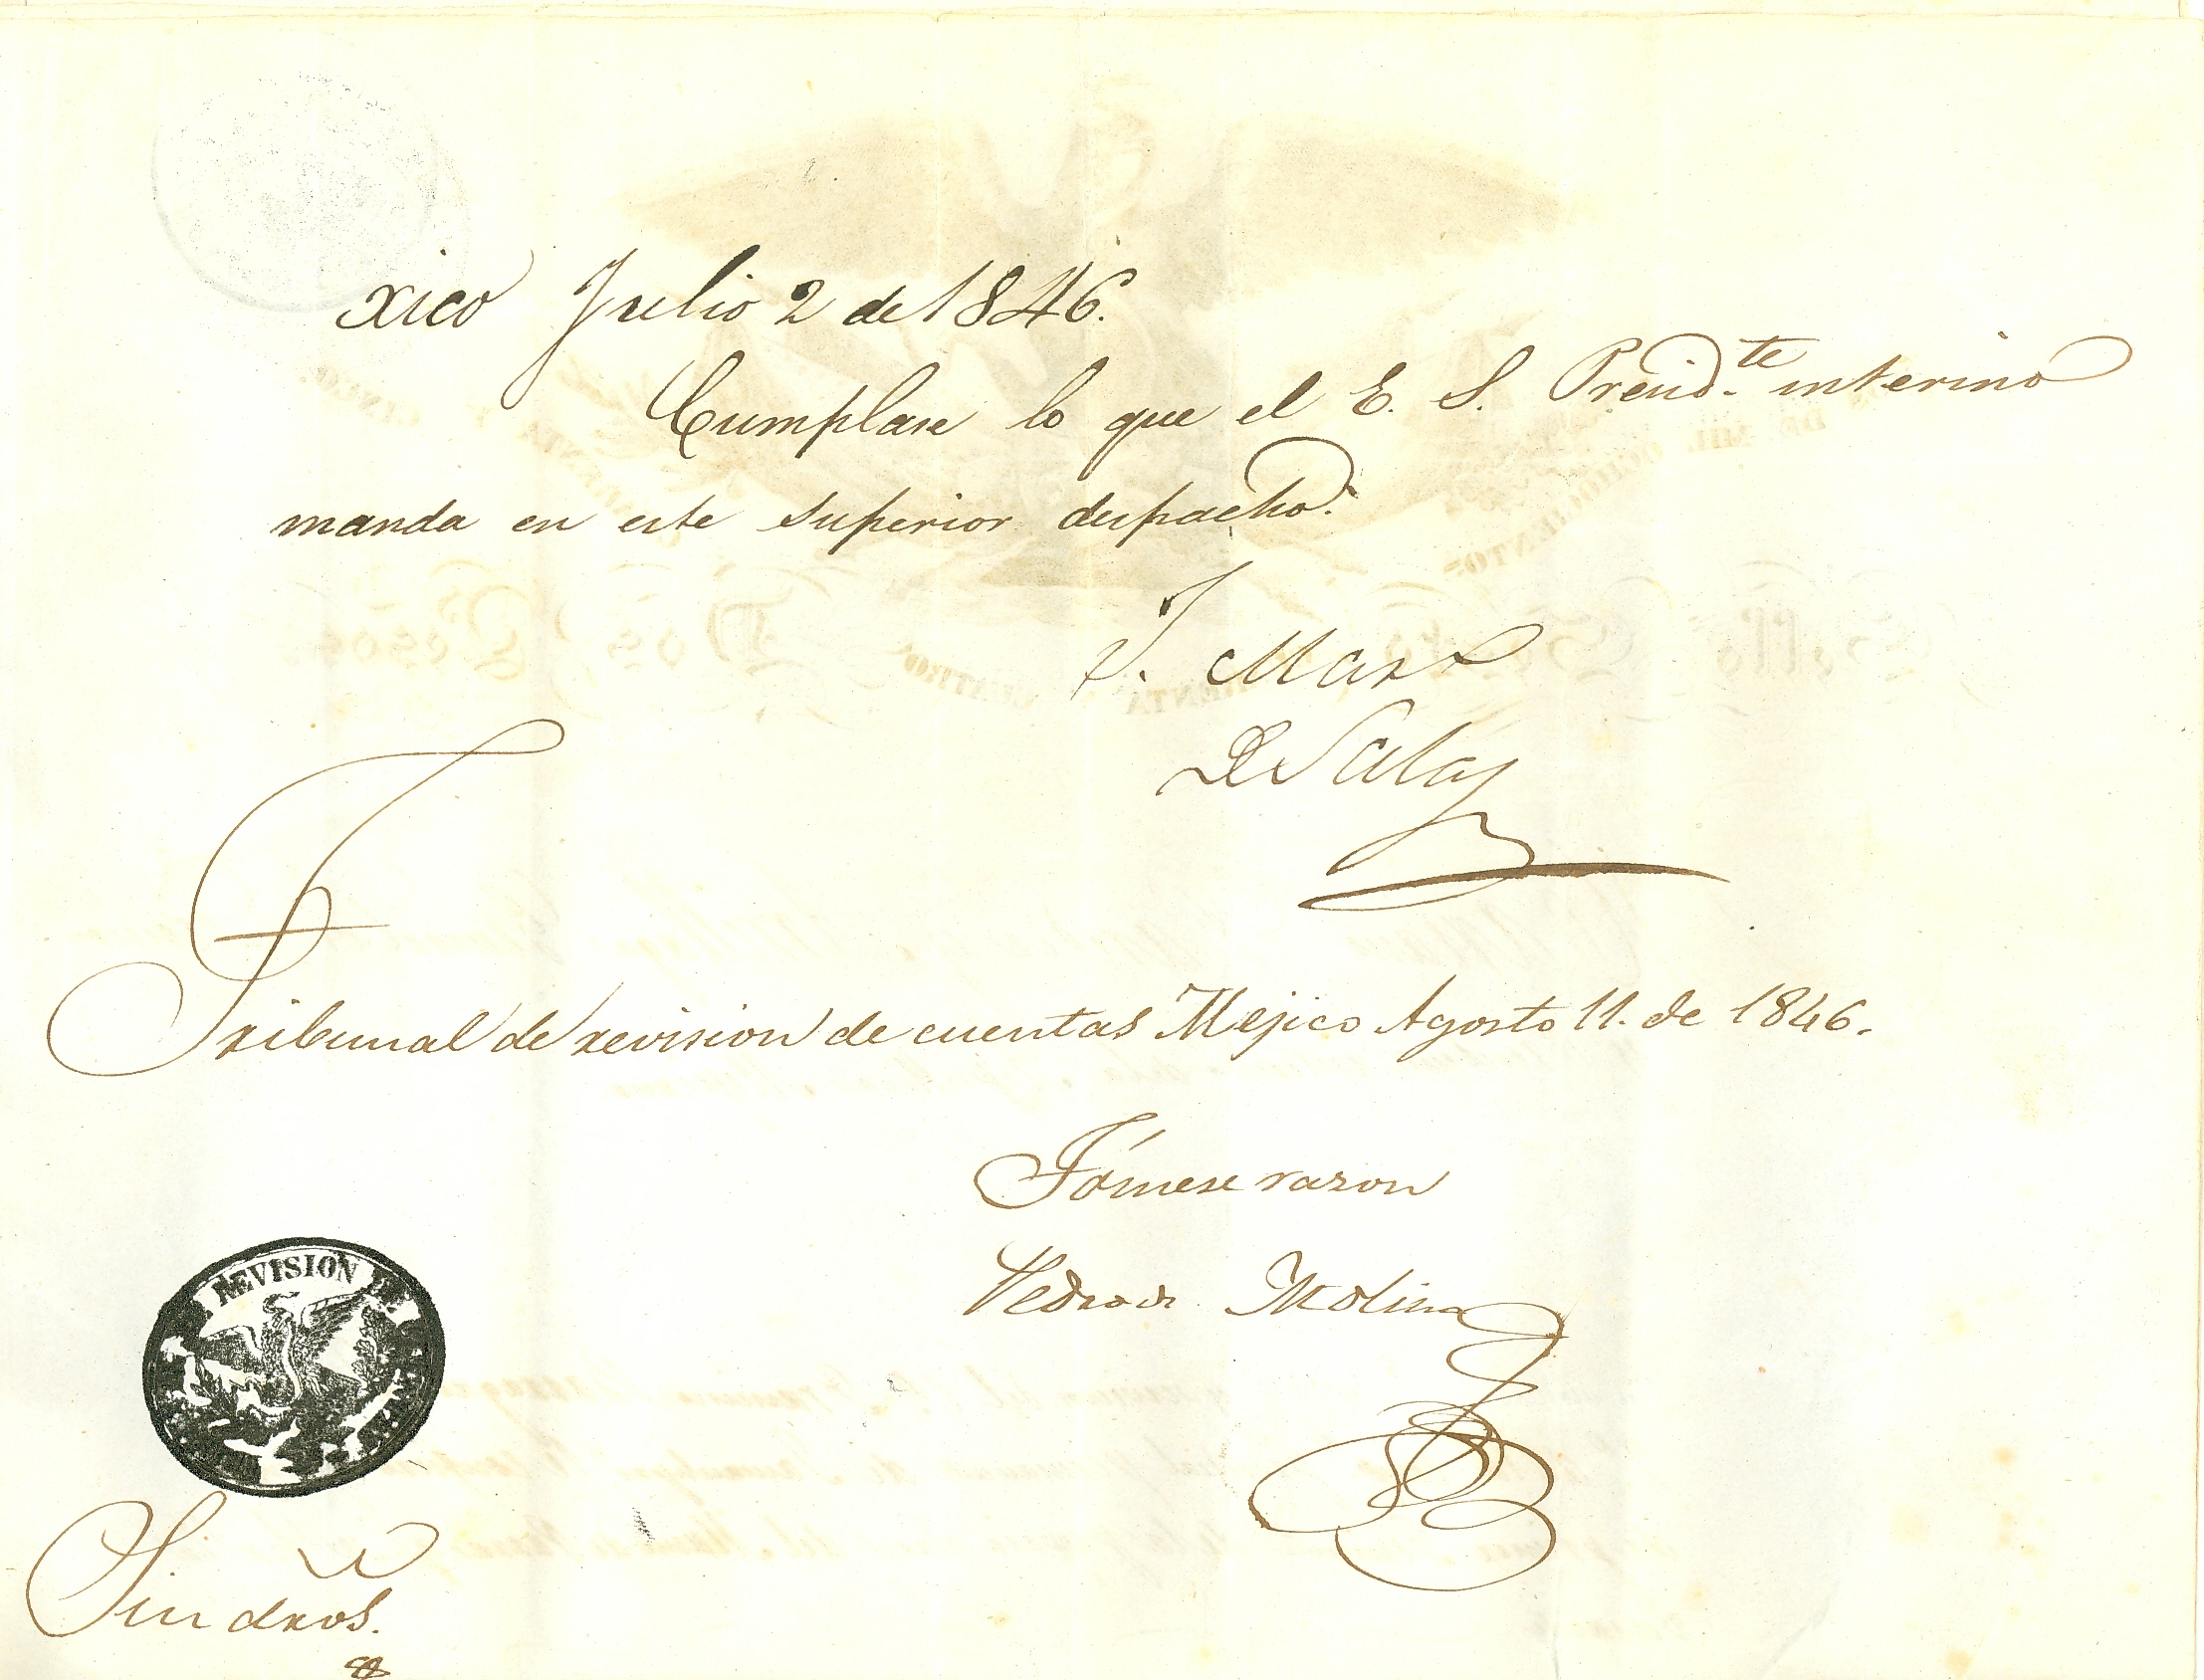 xico Julio 2 de 1846.
Cumplase lo que el E. S. Presid.te interino
manda en este superior despacho.
J. Mar.a
de Salas
Tribunal de revision de cuentas Mejico Agosto 11. de 1846.
Tómese razon
Pedro de Molina
REVISION DE
Sin dros.